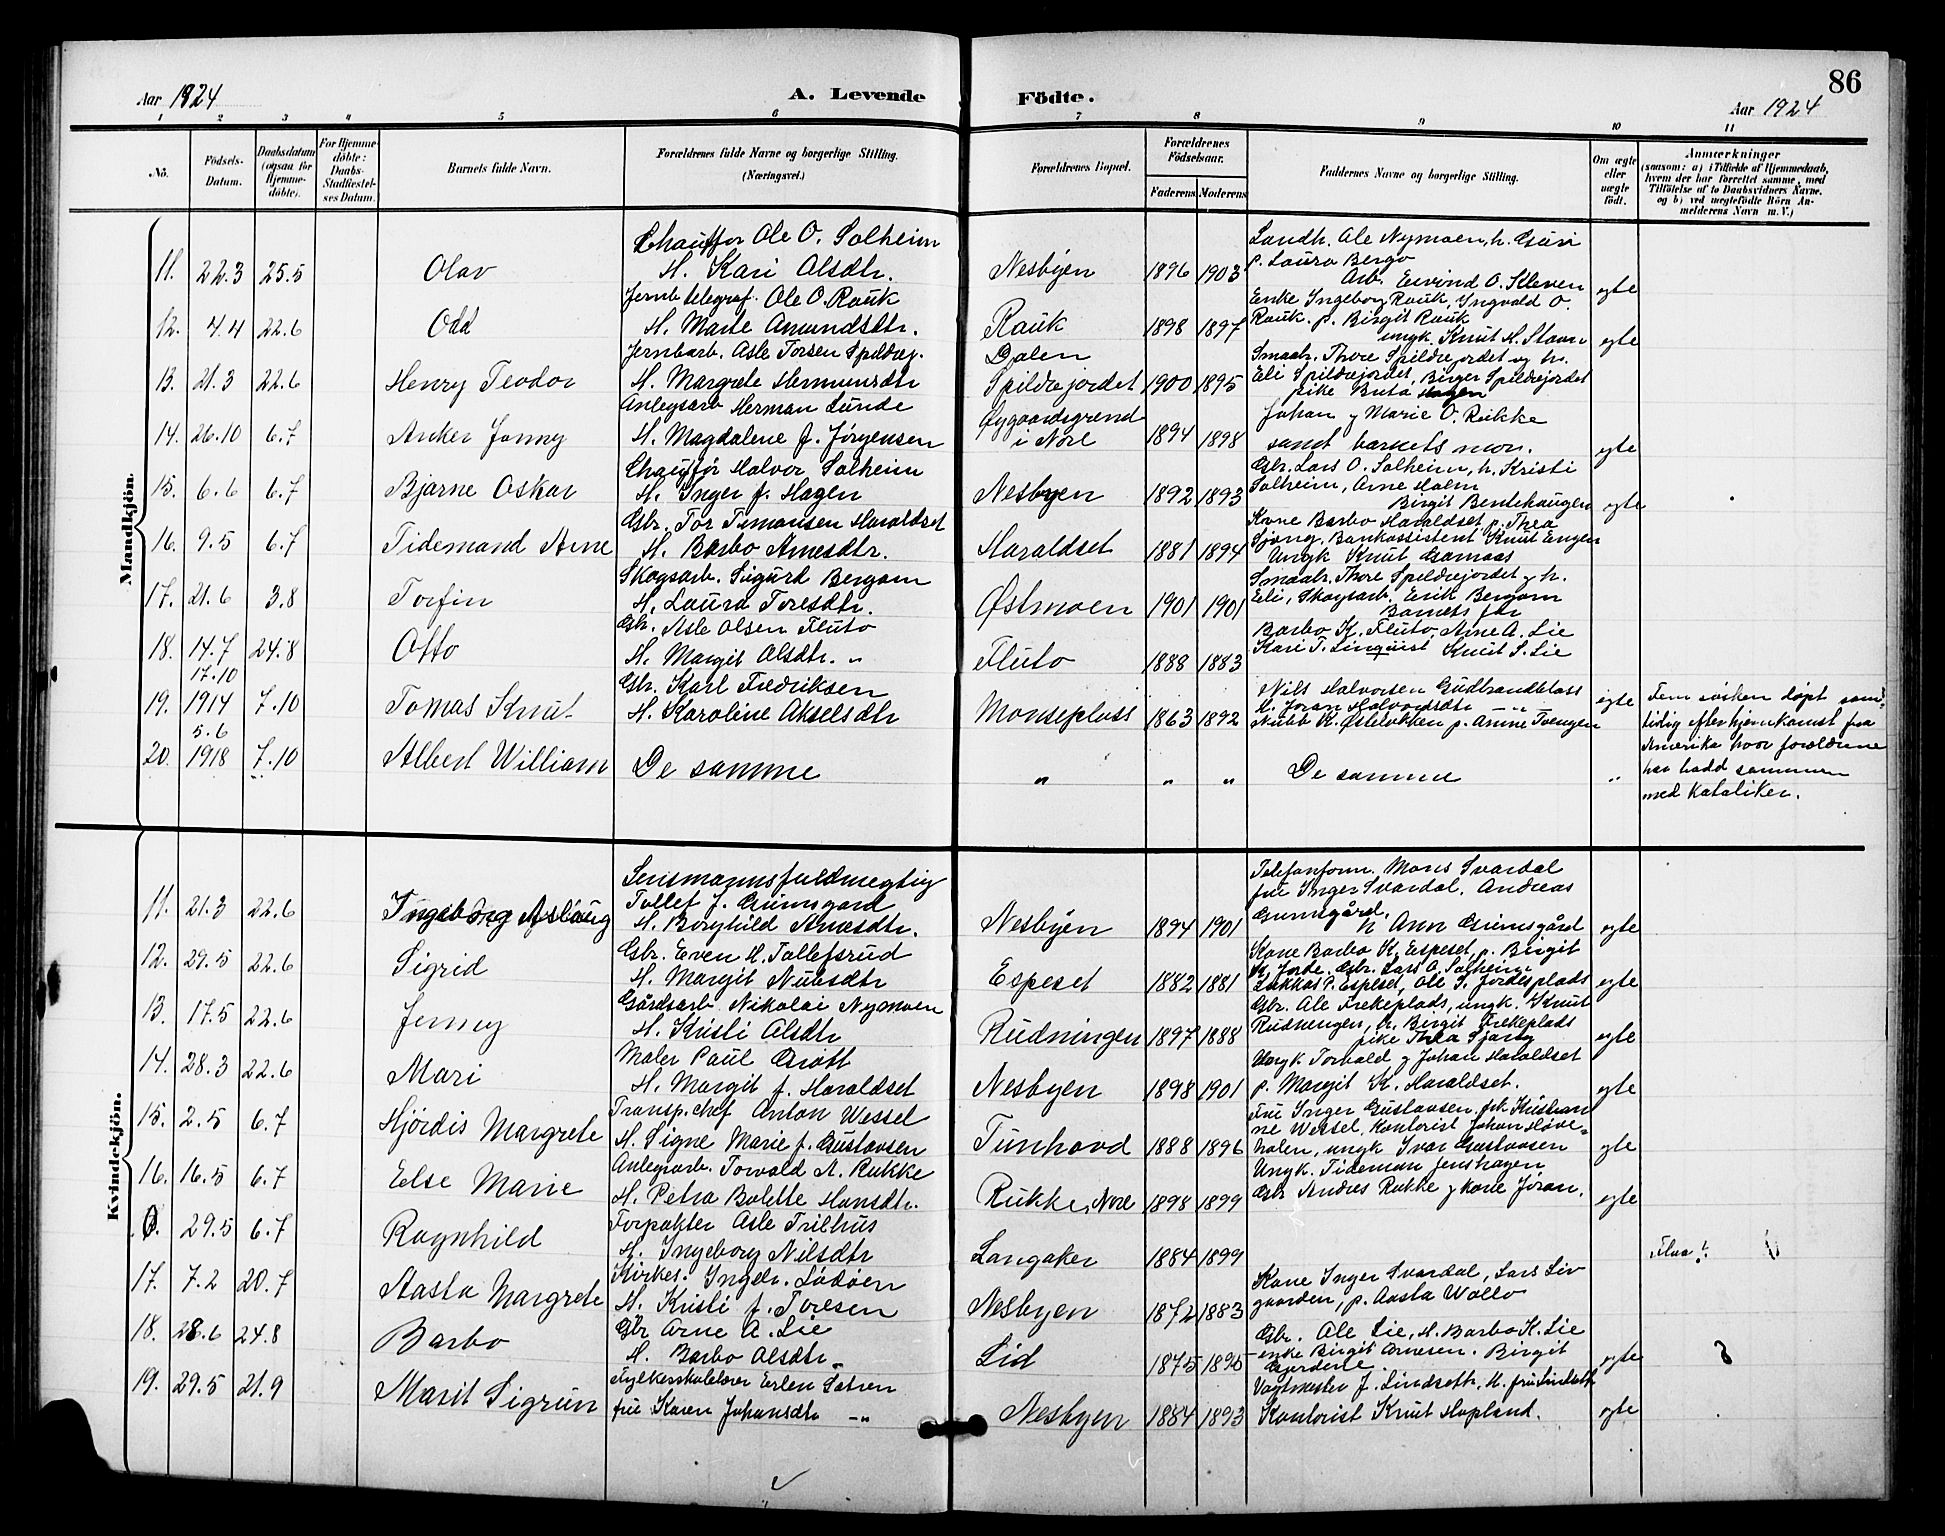 Aar 1924
A. Levende
Födte.
86
Aar 1924
1 2 3 4 5 6 7 8 9 10 11
No.
Födsels-Datum.
Daabsdatum (ogsaa for Hjemmedöbte).
For Hjemmedöbte: Daabs-Stadfestelses Datum.
Barnets fulde Navn.
Forældrenes fulde Navne og borgerlige Stilling. (Næringsvei.)
Forældrenes Bopæl.
Forældrenes Födselsaar.
Faderens Moderens
Faddernes Navne og borgerlige Stilling.
Om ægte eller uægte födt.
Anmærkninger
(saasom: a) i Tilfælde af Hjemmedaab, hvem der har forrettet samme, med Tilföielse af to Daabsvidners Navne, og b) ved uægtefödte Börn Anmelderens Navn m. V.)
Mandkjön.
11. 22.3 25.5 Olav
Chauffør Ole O. Solheim
H. Kari Olsdtr.
Nesbyen 1896 1903
Landh. Ole Nymoen, h. Guri
p. Laura Bergo
Arb. Eivind O. Kleven
egte
12. 4.4 22.6 Odd
Jernb telegraf. Ole O. Rauk
H. Marte Amundsdtr.
Rauk 1898 1897
Enke Ingeborg Rauk, Ingvald O.
Rauk. p. Birgit Rauk
ungk. Knut H. Stavn
egte
13. 21.3 22.6 Henry Teodor
Jernbarb. Asle Torsen Spildrej.
H. Margrete Hermunsdtr
Dalen
Spildrejordet 1900 1895
Smaabr. Thore Spildrejordet og h.
Eli Spildrejordet, Birger Spildrejordet
pike Buta Hagen
14. 26.10 6.7 Anker Jonny
Anlegsarb Herman Lunde
H. Magdalene f. Jørgensen
Øygaardsgrend
i Nore 1894 1898
Johan og Marie O. Rukke
samt barnets mor.
egte
15. 6.6 6.7 Bjarne Oskar
Chauffør Halvor Solheim
H. Inger f. Hagen
Nesbyen 1892 1893
Gbr. Lars O. Solheim, h. Kristi
Solheim, Arne Holm
Birgit Bentehaugen
egte
16. 9.5 6.7 Tidemand Arne
Gbr. Tor Timansen Haraldset
H. Barbo Arnesdtr.
Haraldset 1881 1894
Kone Barbo Haraldset, p. Thea
Sjong. Bankassistent Knut Engen
Ungk Knut Garnaas
17. 21.6 3.8 Torfin
Skogsarb. Sigurd Bergom
H. Laura Toresdtr.
Østmoen 1901 1901
Smaabr. Thore Spildrejordet og h.
Eli, Skogsarb. Erik Bergom
Barnets far
18. 14.7 24.8 Otto
Gbr. Asle Olsen Fluto
H. Margit Olsdtr. "
Fluto 1888 1883
Barbo K. Fluto, Arne A. Lie
Kari T. Linquist Knut S. Lie
19. 17.10 1914 7.10 Tomas Knut
Gbr. Karl Fredriksen
H. Karoline Akselsdtr
Monseplass 1863 1892
Nils Halvorsen Gudbrandblass
H. Joran Halvorsdtr " "
Nubb K. Østelokken p. Anne Tvengen
egte
Fem søsken døpt sam-
tidig efter hjemkomst fra
Amerika hvor forældrene
har hadd sammen
med katoliker.
20. 5.6 1918 7.10 Albert William
De samme
" " "
De samme
"
Kvindekjön.
11. 21.3 22.6 Ingeborg Aslaug
Lensmannsfuldmegtig
Tollef J. Grimsgard
H. Borghild Arnesdtr.
Nesbyen 1894 1901
Telefonform. Mons Svardal
frue Inger Svardal. Andreas
Grimsgård,
h Ann Grimsgård
egte
12. 29.5 22.6 Sigrid
Gbr. Even H. Tollefsrud
H. Margit Nubsdtr
Espeset 1882 1881
Kone Barbo K. Espeset, p. Birgit
K. Jorde. Gbr. Lars O. Solheim
Lukkas P. Espeset, Ole S. Jordesplads
egte
13. 17.5 22.6 Jenny
Gårdsarb Nikolai Nymoen
H. Kristi Olsdtr
Rudningen 1897 1888
Gbr. Ole Frekeplads, ungk. Knut
Rudnengen, h. Birgit Frekeplads
pike Thea Sjong
egte
14. 28.3 22.6 Mari
Maler Paul Grøtt
H. Margit f. Haraldset
Nesbyen 1898 1901
Ungk Torvald og Johan Haraldset
p. Margit K. Haraldset.
egte
15. 2.5 6.7 Hjørdis Margrete
Transp.chef Anton Wessel
H. Signe Marie f. Gustavsen
Tunhovd 1888 1896
Frue Inger Gustavsen, frk. Kristian
ne Wessel, kontorist Johan Høve-
holen, ungk Ivar Gustavsen
egte
16. 16.5 6.7 Else Marie
Anlegsarb. Torvald A. Rukke
H. Petra Bolette Hansdtr.
Rukke, Nore 1898 1899
Ungk. Tideman Jenshagen
Gbr Andres Rukke og kone Jøran.
egte
0. 29.5 6.7 Ragnhild
Forpakter Asle Trilhus
H. Ingeborg Nilsdtr
Langaker 1884 1899
Flaa!
17. 7.2 20.7 Aasta Margrete
Kirkes. Ingebr. Lødøen
H. Kristi f. Toresen
Nesbyen 1872 1883
Kone Inger Svardal, Lars Liv
gaarden, p. Aasta Wollo
18. 28.6 24.8 Barbo
Gbr Arne A. Lie
H. Barbo Olsdtr "
Lid 1875 1895
Gbr. Ole Lie, H. Barbo K. Lie
enke Birgit Arnesen. Birgit
Gjerdene.
egte
19. 29.5 21.9 Marit Sigrun
Fylkesskolelærer Erlen Satren
frue Karen Johansdtr "
Nesbyen 1884 1893
Vagtmester J. Lindseth, H. frue Lindseth
Kontorist Knut Hopland.
egte